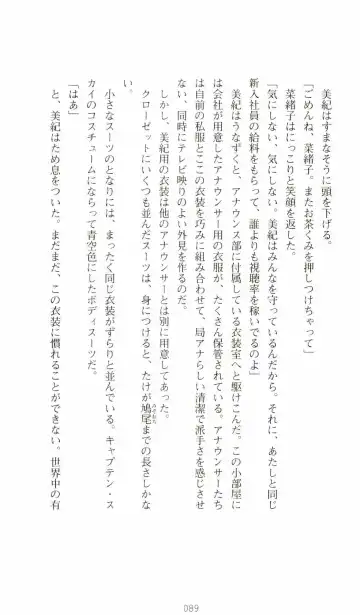 美紀はすまなそうに頭を下げる。
「ごめんね、菜緒子。またお茶くみを押しつけちゃって」
菜緒子はにっこりと笑顔を返した。
「気にしない、気にしない。美紀はみんなを守っているんだから。それに、あたしと同じ
新入社員の給料をもらって、誰よりも視聴率を稼いでるのよ」
美紀はうなずくと、アナウンス部に付属している衣装室へと駆けこんだ。この小部屋に
は会社が用意したアナウンサー用の衣服が、たくさん保管されている。アナウンサーたち
は自前の私服とここの衣装を巧みに組み合わせて、局アナらしい清潔で派手さを感じさせ
ない、同時にテレビ映りのよい外見を作るのだ。
しかし、美紀用の衣装は他のアナウンサーとは別に用意してあった。
クローゼットにいくつも並んだスーツは、身につけると、たけが鳩尾までの長さしかな
みぞおち
い。
小さなスーツのとなりには、まったく同じ衣装がずらりと並んでいる。キャプテン・ス
カイのコスチュームにならって青空色にしたボディスーツだ。
「はあ」
と、美紀はため息をついた。まだまだ、この衣装に慣れることができない。世界中の有
089